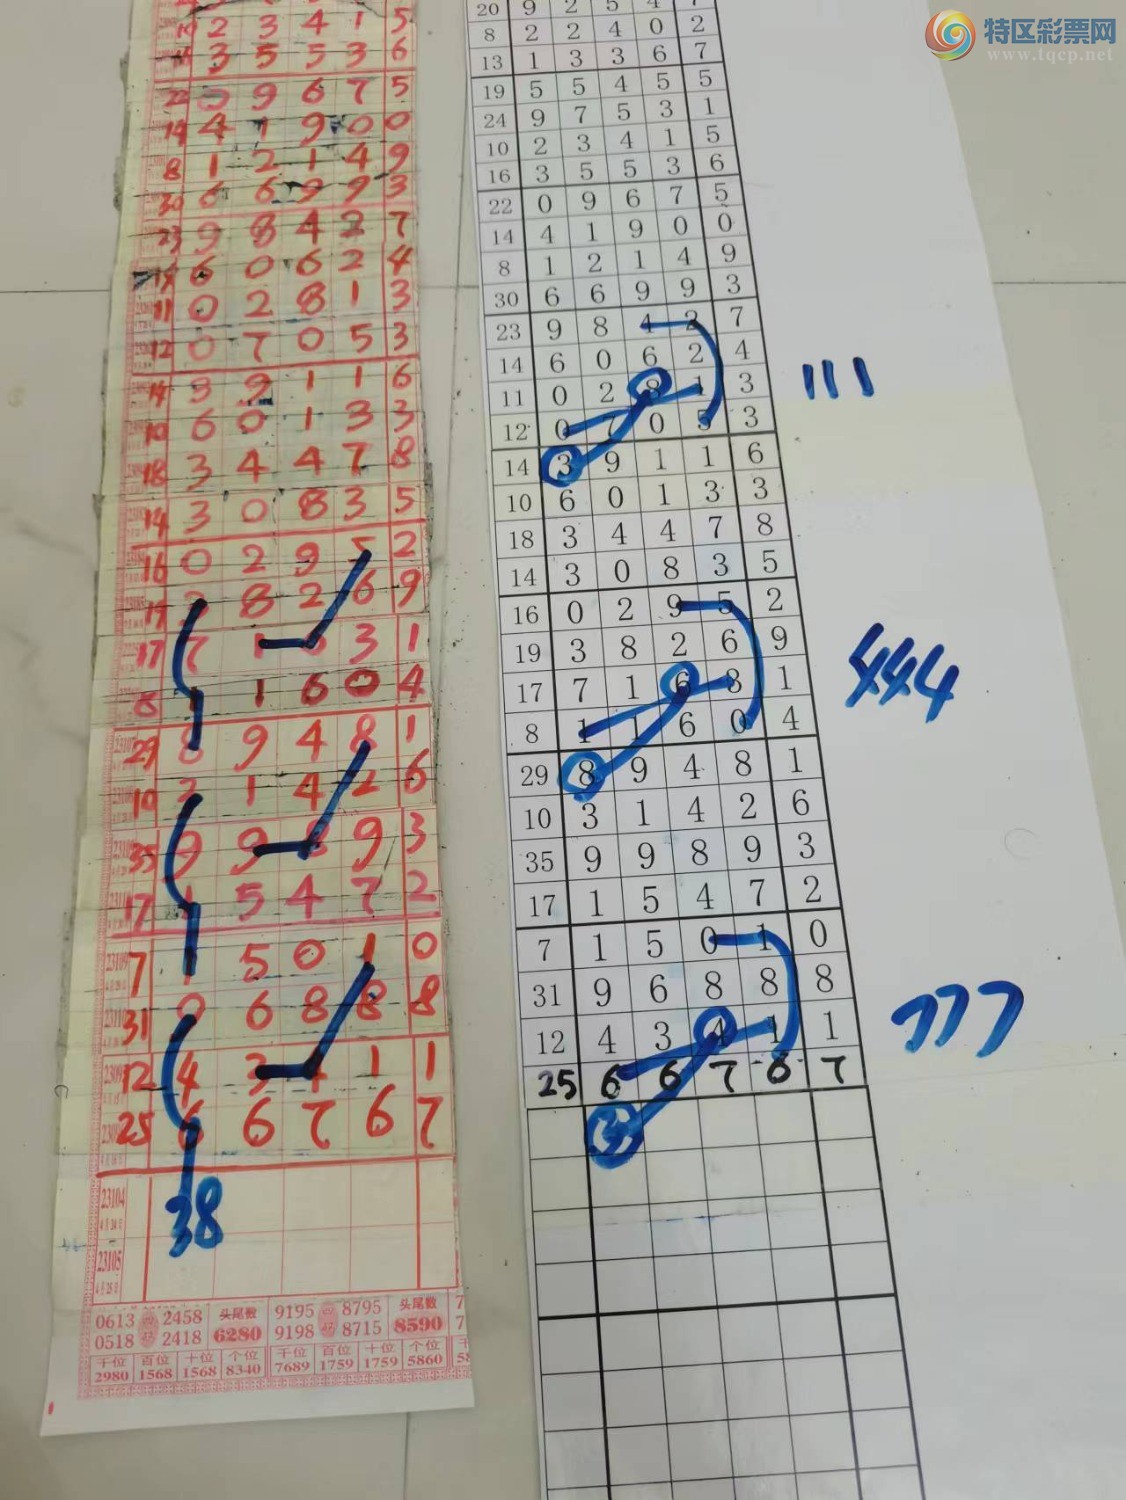 特区彩票网
www.tqcp.net
10 2 3 4 1 5
3 5 5 3 6
22 0 9 6 7 5
14 4 1 9 0 0
8 1 2 1 4 9
30 6 6 9 9 3
23 9 8 4 2 7
14 6 0 6 2 4
11 0 2 8 1 3
12 0 7 0 5 3
14 3 9 1 1 6
10 6 0 1 3 3
18 3 4 4 7 8
14 3 0 8 3 5
16 0 2 9 5 2
19 3 8 2 6 9
17 7 1 3 1
8 1 1 6 0 4
29 8 9 4 8 1
10 3 1 4 2 6
35 9 9 8 9 3
17 1 5 4 7 2
7 1 5 0 1 0
31 9 6 8 8 8
12 4 3 4 1 1
25 6 6 7 6 7
23104
38
23105
0613 2458 头尾数 9195 8795 头尾数
0518 2418 6280 9198 8715 8590
千位 百位 十位 个位 千位 百位 十位 个位
2980 1568 1568 8340 7689 1759 1759 5860
20 9 2 5 4 7
8 2 2 4 0 2
13 1 3 3 6 7
19 5 5 4 5 5
24 9 7 5 3 1
10 2 3 4 1 5
16 3 5 5 3 6
22 0 9 6 7 5
14 4 1 9 0 0
8 1 2 1 4 9
30 6 6 9 9 3
23 9 8 4 2 7
14 6 0 6 2 4
11 0 2 8 1 3 111
12 0 7 0 5 3
14 3 9 1 1 6
10 6 0 1 3 3
18 3 4 4 7 8
14 3 0 8 3 5
16 0 2 9 5 2
19 3 8 2 6 9
17 7 1 6 8 1 444
8 1 1 6 0 4
29 8 9 4 8 1
10 3 1 4 2 6
35 9 9 8 9 3
17 1 5 4 7 2
7 1 5 0 1 0
31 9 6 8 8 8
12 4 3 4 1 1 777
25 6 6 7 6 7
3